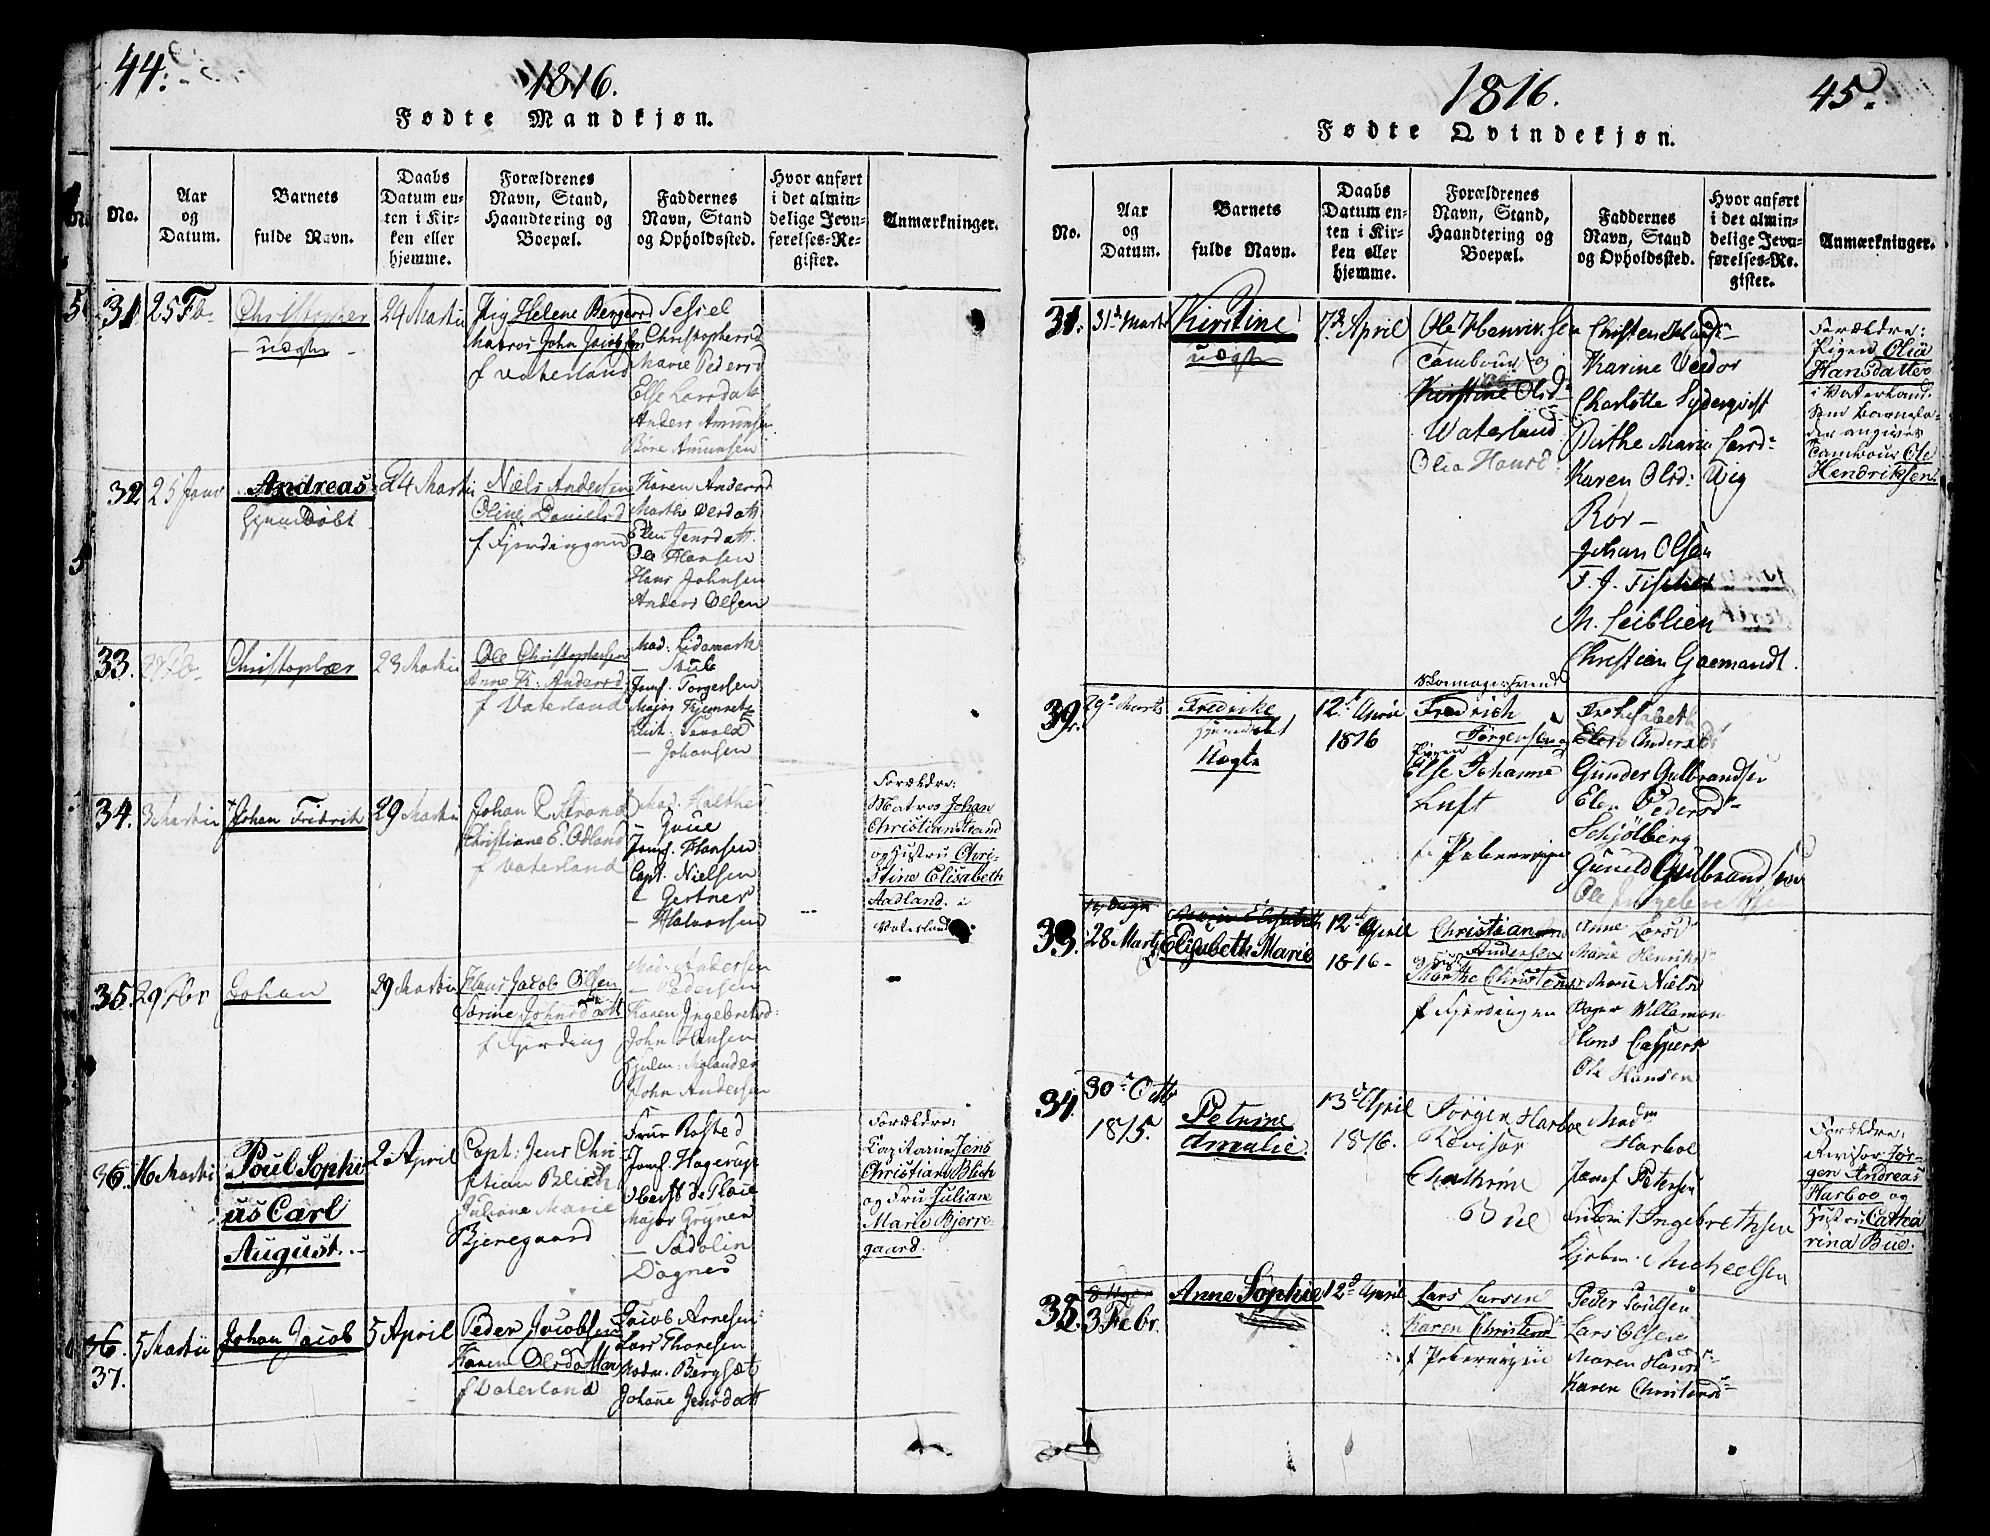 44.
1816.
Fødte Mandkjøn.
No.
Aar
og
Datum.
Barnets
fulde Navn.
Daabs
Datum en-
ten i Kir-
ken eller
hjemme.
Forældrenes
Navn, Stand,
Haandtering og
Boepæl.
Faddernes
Navn, Stand
og Opholdssted.
Hvor anført
i det almin-
delige Jevn-
førelses-Re-
gister.
Anmærkninger.
31
25 Fb.
Christopher
uægte
24 Martii
Pig Helene Bergersd
Matros John Jacobsen
f Vaterland
Sessel
Christophersd
Marie Pedersd
Else Larsdatt
Anders Amunsen
Børe Amunsen
32
25 Janr
Andreas
hjemdøbt
24 Martii
Niels Andersen
Oline Danielsd
f Fjerdingen
Karen Andersd
Marthe Versdatt
Elen Jensdatt.
Ole Hansen
Hans Johnsen
Anders Olsen
33.
Christopher
23 Martii
Ole Christophersen
Anne K. Andersd
f Vaterland
Mad. Lidemark
— Stub
Jomf. Torgersen
Major
Lieut.
— Johansen
34.
3 Martii
Johan Fridrik
29 Martii
Johan C Strand
Christiane E. Odland
f Vaterland
Mad. Holthe
— Grue
Jomf. Hansen
Capt. Nielsen
— Gertner
— Halvorsen
Forældre:
Matros Johan
Christian Strand
og Hustru Chri-
stine Elisabeth
Aadland. i
Vaterland
35.
29 Fbr
Johan
29 Martii
Hans Jacob Olsen
Sørine Johnsdatt
f Fjerding
Mad. Andersen
— Pedersen
Karen Ingebretsd:
John Hansen
Molander
John Andersen
36.
16 Martii
Poul Sophi
us Carl
August.
2 April
Capt: Jens Chri
stian Blich
Juliane Marie
Bjeregaard
Frue Rosted
Jomf. Hagerup
Oberst de Thaue
Major Gryner
— Sadolin
Dagnes
Forældre:
Capitaine Jens
Christian Blich
og Fru Juliane
Marie Bjerre-
gaard.
36.
37.
5 Martii
Johan Jacob
5 April
Peder Jacobsen
Karen Olsdatter
f Vaterland
Jacob Arnesen
Lars Thoresen
Madm. Bergsæt
Johane Jensdatt
1816.
45.
Fødte Qvindekjøn.
No.
Aar
og
Datum.
Barnets
fulde Navn.
Daabs
Datum en-
ten i Kir-
ken eller
hjemme.
Forældrenes
Navn, Stand,
Haandtering og
Boepæl.
Faddernes
Navn, Stand
og Opholdssted.
Hvor anført
i det almin-
delige Jevn-
førelses-Re-
gister.
Anmærkninger.
31.
31d Marts
Kirstine
uægte
7d April
Ole Henricsen
Tambour og
Kirstine Olsd
Waterland
Olia Hansd.
Christen
Karine Veidor
Charlotte Syderqvist
Dirthe Marie Larsd
Karen Olsd:
Ror —
Johan Olsen
F. J. Fischer
M. Leiblien
Christian Gaemandt.
Forældre:
Pigen Olia
Hansdatter
i Vaterland.
Som Barnefa-
der angives
Tambour Ole
Hendriksen.
32.
29d Marts
Fredrike
hjemdøbt
Uægte
12d April
1816
Skomagersvend
Fredrich
Jørgensen og
Pigen
Else Johanne
Luft
f. Pebervigen
Elen Andersd
Gunder Gulbrandsen
Elen Pedersd
Schjølberg
Gunild Gulbrandsen
Ole Ingebretsen
33.
28 Marts
Elisabeth Marie
12d April
1816 -
Christian
Andersen
og Hus
Marthe Christens
f Fjerdingen
Anne Larsd
Marie Henriks
Marie Nielsd
Roger Willeman
Hans Caspers
Ole Hansen
34.
30d Octbr
1815.
Petrine
Amalie.
13d April
1816.
Jørgen Harboe
Revisor
Chathrine
Bue
Madm
Harboe
Jomf Petersen
Ingebrethsen
Micheelsen
Forældre:
Revisor Jør-
gen Andreas
Harboe og
Hustru Catha
rina Bue.
35.
3 Febr.
Anne Sophie
12d April
Lars Larsen
Karen Christensd
f Pebervigen
Peder Poulsen
Lars Olsen
Maren Hansd
Karen Christensd